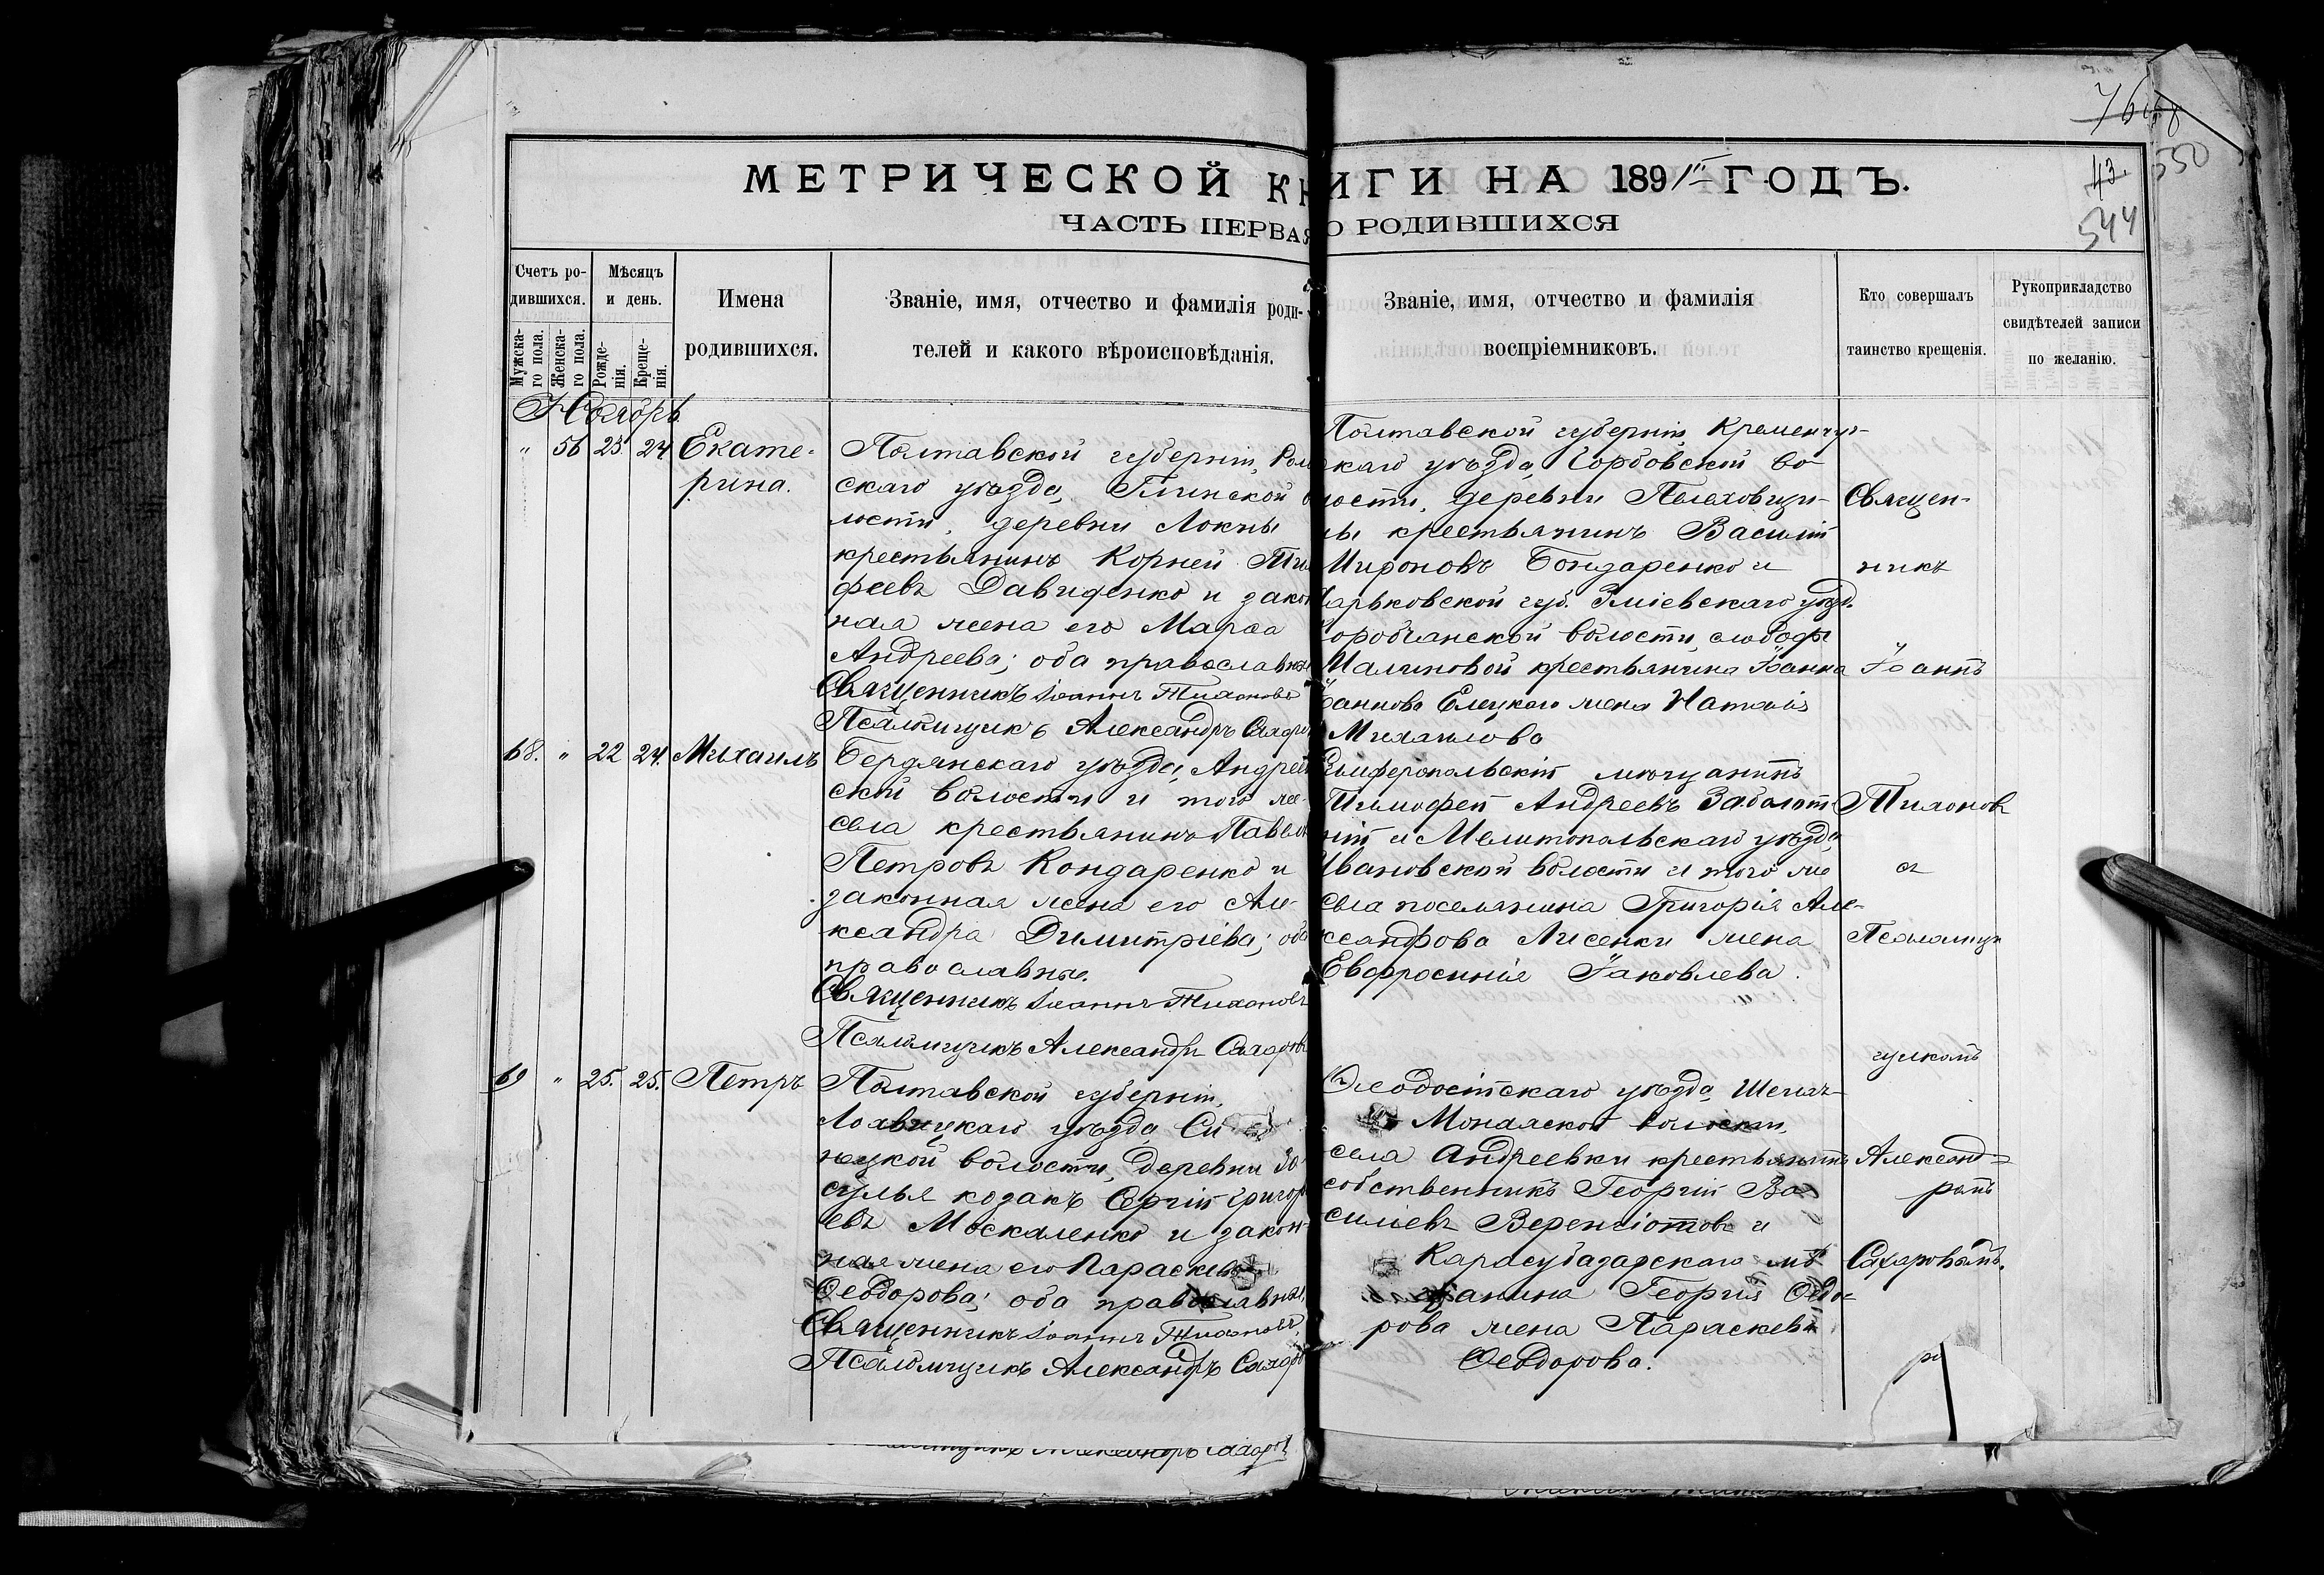 МЕТРИЧЕСКОЙ КНИГИ НА 1891 ГОДЪ.
ЧАСТЬ ПЕРВАЯ О РОДИВШИХСЯ
43.
544
550
Счетъ ро-
дившихся.
Мужска-
го пола.
Женска-
го пола.
Мѣсяцъ
и день.
Рожде-
нія.
Креще-
нія.
Имена
родившихся.
Званіе, имя, отчество и фамилія роди-
телей и какого вѣроисповѣданія.
Званіе, имя, отчество и фамилія
воспріемниковъ.
Кто совершалъ
таинство крещенія.
Рукоприкладство
свидѣтелей записи
по желанію.
Ноябрь
" 56 23. 24 Екате-
рина.
Полтавской губерніи, Ром
скаго уѣзда, Глинской во
лости, деревни Локны
крестьянинъ Корней Ти
феевъ Давиденко и закон
ная жена его Марѳа
Андреева; оба православны
Священникъ Іоаннъ Тихоновъ
Псаломщикъ Александръ Сахаро
Полтавской губерніи, Кременчуг-
скаго уѣзда, Горбовской во-
лости, деревни Пелеховщи-
ны крестьянинъ Василій
Мироновъ Бондаренко и
Харьковской губ. Зміевскаго уѣзд.
волости, слободы
Малиновой крестьянина Іоанна
Іоаннова Елецкаго жена Наталія
Михаилова
68. " 22 24. Михаилъ
Бердянскаго уѣзда, Андреев
ской волости и того же
села крестьянинъ Павелъ
Петровъ Кондаренко и
законная жена его Але-
ксандра Димитріева; оба
православные.
Священникъ Іоаннъ Тихоновъ
Псаломщикъ Александръ Сахаровъ
Симферопольскій мѣщанинъ
Тимофей Андреевъ Заболот
ній и Мелитопольскаго уѣзда
Ивановской волости и того же
села поселянина Григорія Але-
ксандрова Лисенки жена
Евфросинія Іаковлева.
69 " 25. 25. Петръ
Полтавской губерніи,
Лохвицкаго уѣзда, Си
нецкой волости, деревни За
сулья козакъ Сергій Григор
евъ Москаленко и закон-
ная жена его Параскева
Ѳеодорова; оба православны.
Священникъ Іоаннъ Тихоновъ,
Псаломщикъ Александръ Сахаров
Ѳеодосійскаго уѣзда, Шейхъ-
Монайской волости,
села Андреевки крестьянинъ
собственникъ Георгій Ва-
силіевъ и
Карасубазарскаго мѣ
щанина Георгія Ѳеодо-
рова жена Параскева
Ѳеодорова.
Священ-
никъ
Іоаннъ
Тихоновъ
съ
Псаломщи
щикомъ
Александ-
ромъ
Сахаровымъ.